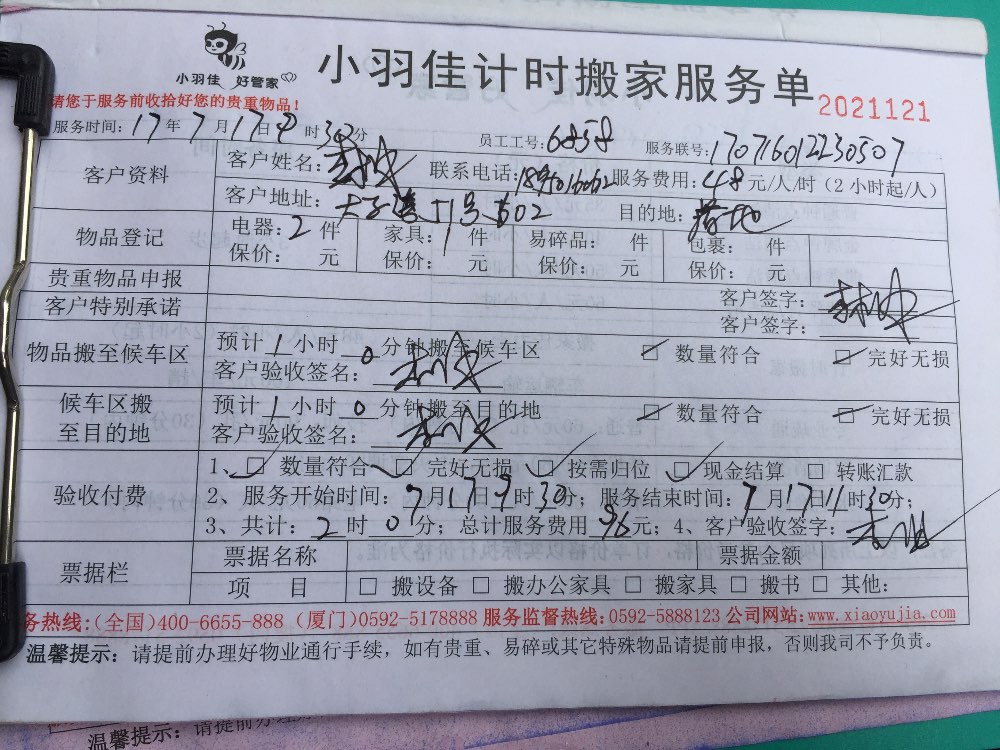 小羽佳 好管家
小羽佳计时搬家服务单
2021121
请您于服务前收拾好您的贵重物品！
服务时间：17年7月17日9时30分 员工工号：6858 服务联号：170716012230507
客户资料
客户姓名： 联系电话： 服务费用：48元/人/时（2小时起/人）
客户地址： 602 目的地：落地
物品登记
电器：2件 家具：1件 易碎品： 件 包裹： 件
保价： 元 保价： 元 保价： 元 保价： 元
贵重物品申报 客户签字：
客户特别承诺 客户签字：
物品搬至候车区
预计1小时0分钟搬至候车区 数量符合 完好无损
客户验收签名：
候车区搬至目的地
预计1小时0分钟搬至目的地 数量符合 完好无损
客户验收签名：
验收付费
1、 数量符合 完好无损 按需归位 现金结算 转账汇款
2、服务开始时间：7月17日9时30分；服务结束时间：7月17日11时30分；
3、共计：2时0分；总计服务费用96元；4、客户验收签字：
票据栏
票据名称 票据金额
项 目 搬设备 搬办公家具 搬家具 搬书 其他：
务热线：（全国）400-6655-888（厦门）0592-5178888 服务监督热线：0592-5888123 公司网站：www.xiaoyujia.com
温馨提示：请提前办理好物业通行手续，如有贵重、易碎或其它特殊物品请提前申报，否则我司不予负责。
温馨提示：请提前办理